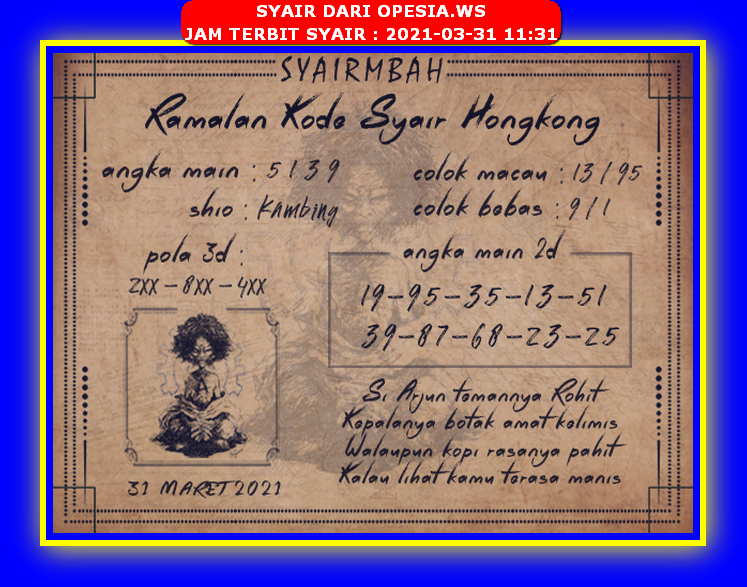 SYAIR DARI OPESIA.WS
JAM TERBIT SYAIR : 2021-03-31 11:31
SYAIRMBAH
Ramalan Kode Syair Hongkong
angka main : 5 1 3 9
colok macau : 13 / 95
shio : Kambing
colok bebas : 9 / 1
pola 3d :
2XX - 8XX - 4XX
angka main 2d
19-95-35-13-51
39-87-68-23-25
Si Arjun temannya Rohit
Kepalanya botak amat kelimis
Walaupun kopi rasanya pahit
Kalau lihat kamu terasa manis
31 MARET 2021